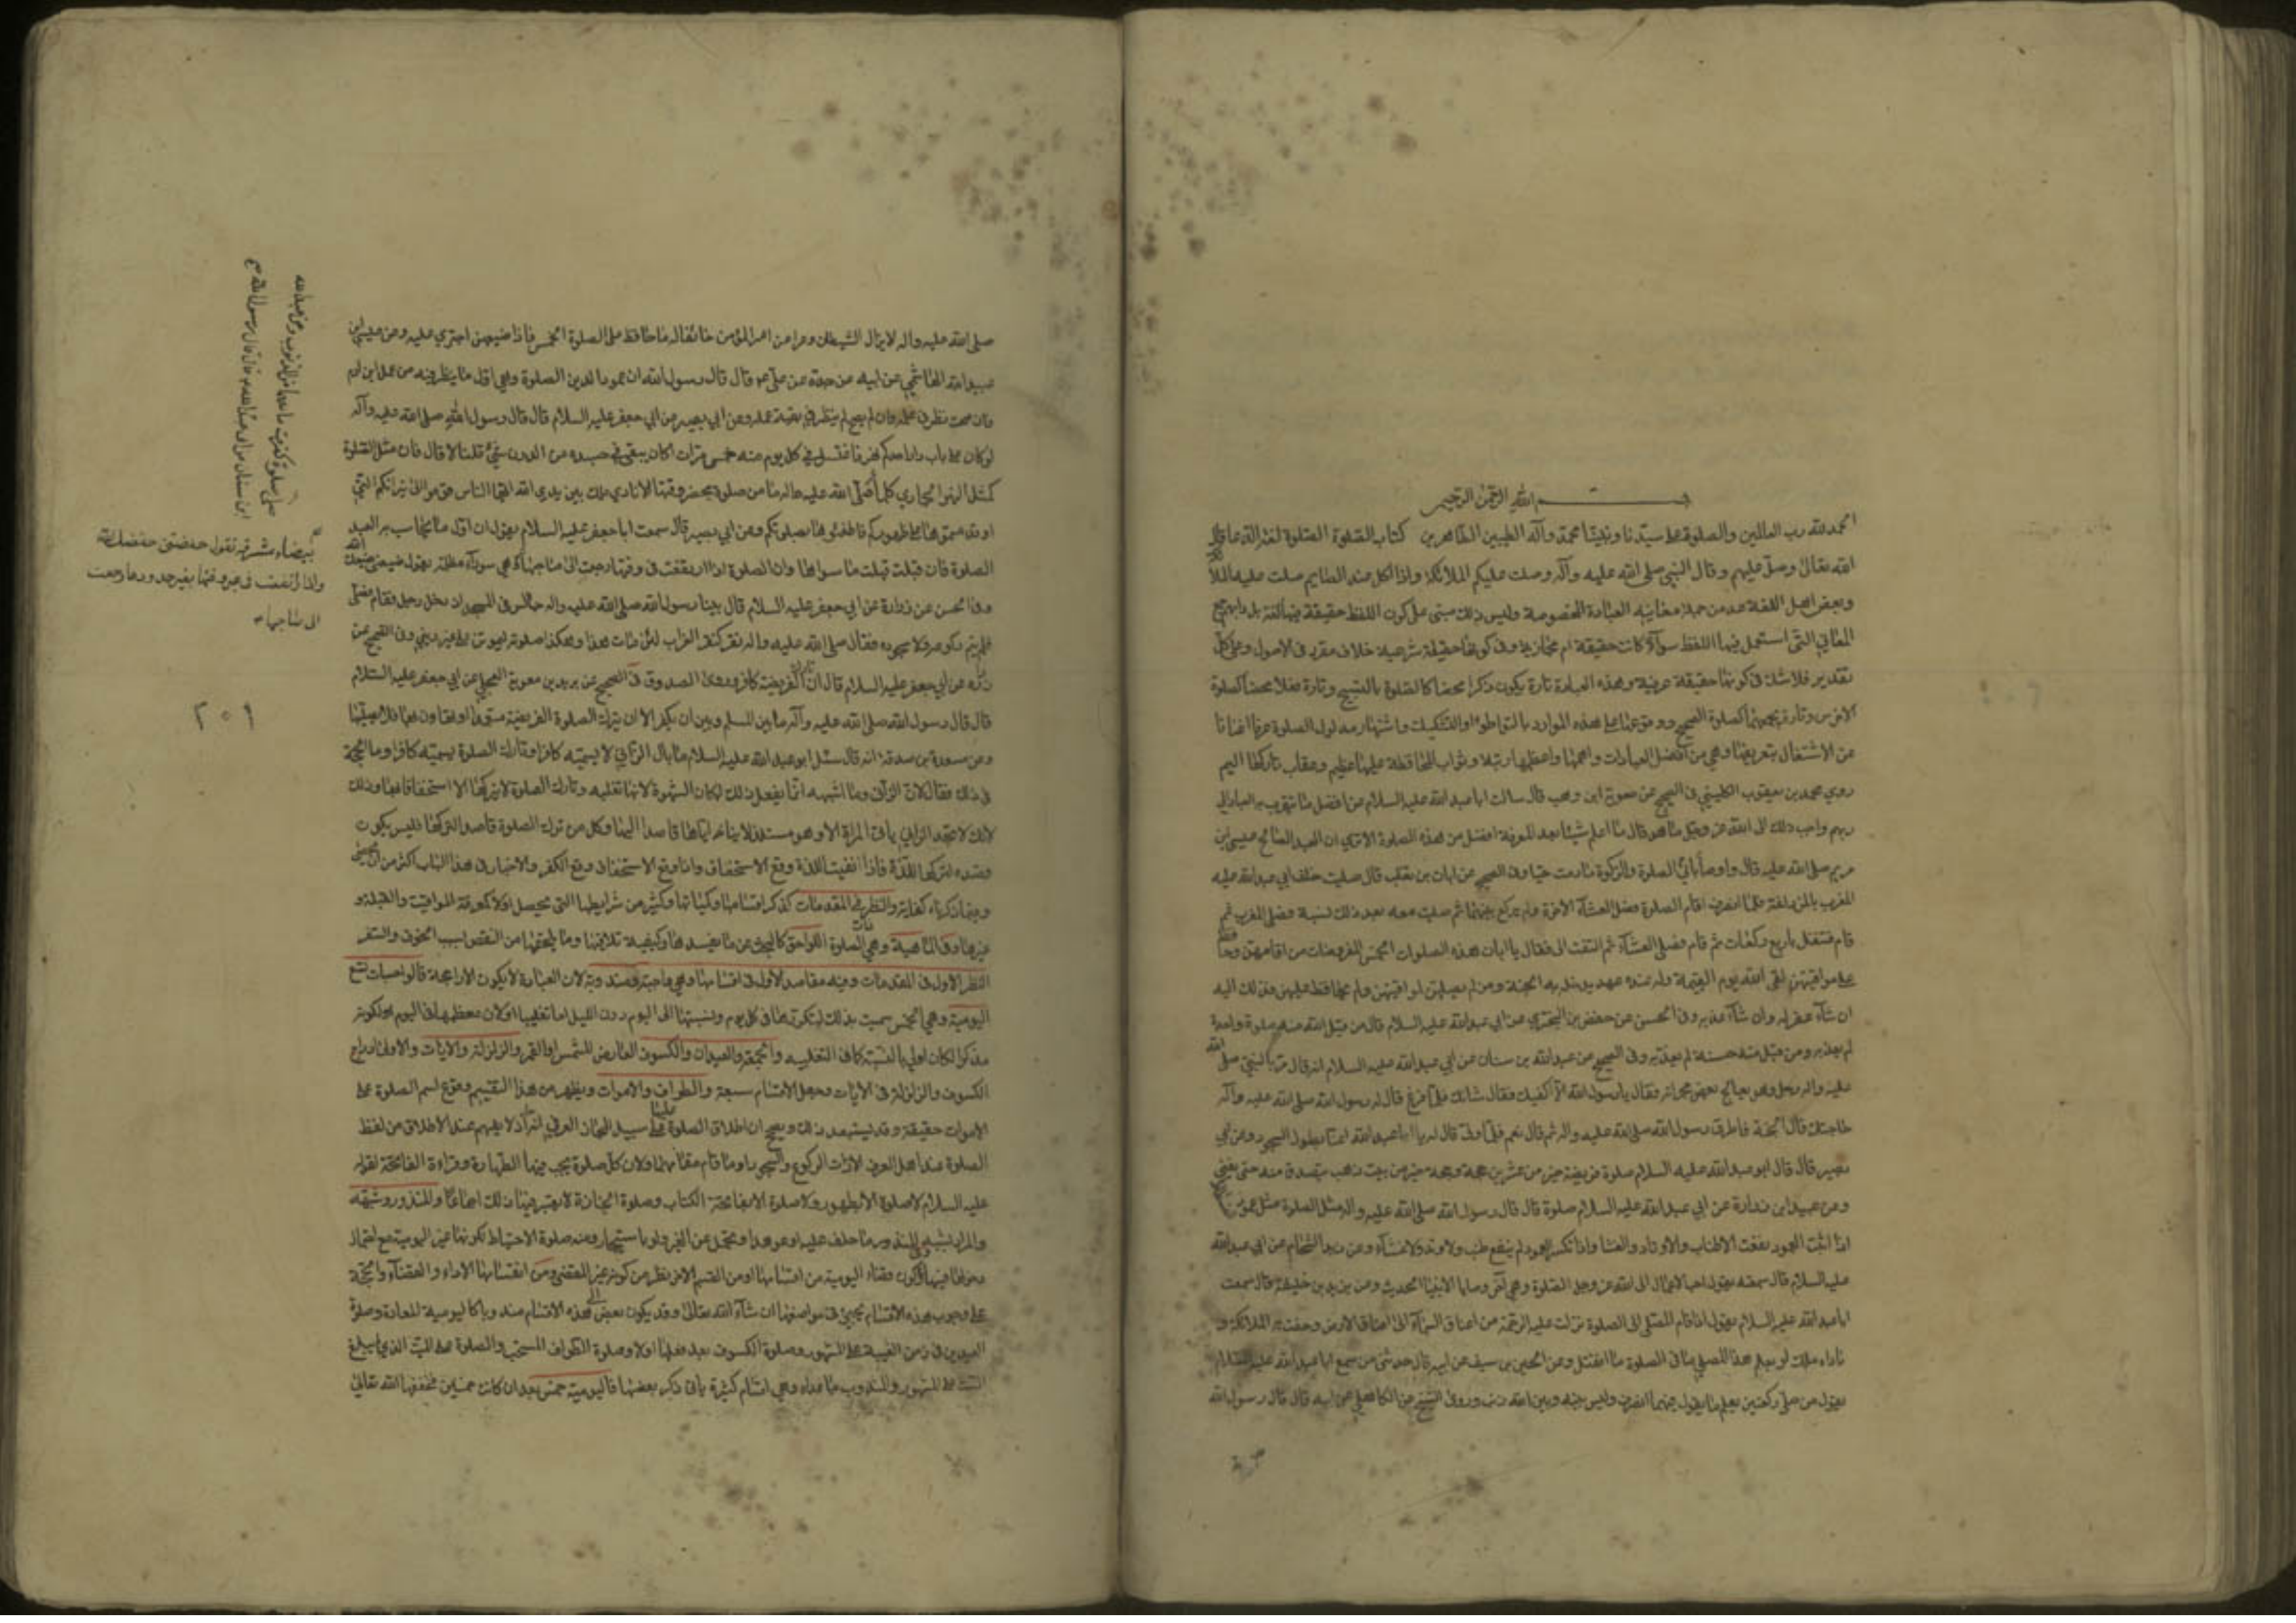 بسم الله الرحمن الرحيم
الحمد لله رب العالمين والصلوة على سيدنا ونبينا محمد وآله الطيبين الطاهرين كتاب الصلوة الصلوة لغة الدعا قال
الله تعالى وصل عليهم وقال النبي صلى الله عليه وآله وصلت عليكم الملائكة واذا اكل عند الصايم صلت عليه الملا
وبعض اهل اللغة عد من جملة معانيه العبادة المخصوصة وليس ذلك مبنى على كون اللفظ حقيقة فيها لغة بل
المعاني التى استعمل فيها اللفظ سوآء كانت حقيقة ام مجازية وفى كونها حقيقة شرعية خلاف مقرر فى الاصول وعلى كل
تقدير فلا شك فى كونها حقيقة عرفية وهذه العبادة تارة يكون ذكرا محضا كالصلوة بالتسبيح وتارة فعلا محضا كصلوة
الاخرس وتارة يجمعهما كصلوة الصحيح ووقوعها على هذه الموارد بالتواطؤ او التشكيك واشتهار مدلول الصلوة عرفا اغنانا
عن الاشتغال بتعريفها وهي من افضل العبادات واهمها واعظمها رتبة وثواب المحافظة عليها عظيم وعقاب تاركها اليم
روي محمد بن يعقوب الكليني فى الصحيح عن معوية ابن وهب قال سالت ابا عبد الله عليه السلام عن افضل ما تيقرب به العباد الى
ربهم واحب ذلك الى الله عز وجل ما هو قال ما اعلم شيئا بعد المعرفة افضل من هذه الصلوة الا ترى ان العبد الصالح عيسى ابن
مريم صلى الله عليه قال واوصاني بالصلوة والزكوة ما دمت حيا وفى الصحيح عن ابان بن تغلب قال صليت خلف ابي عبد الله عليه
المغرب بالمزدلفة فلما انصرف اقام الصلوة فصل العشآء الاخرة ولم يركع بينهما ثم صليت معه بعد ذلك لسنة فصلى المغرب ثم
قام فتنفل باربع ركعات ثم قام فصلى العشآء ثم التفت الى فقال يا ابان هذه الصلوات الخمس المفروضات من اقامهن وحافظ
على مواقيتهن لقى الله يوم القيمة وله عنده عهد يدخله به الجنة ومن لم يصلهن لمواقيتهن ولم يحافظ عليهن فذلك اليه
ان شآء غفر له وان شآء عذبه وفى الحسن عن حفص بن البختري عن ابي عبد الله عليه السلام قال من قبل الله منه صلوة واحدة
لم يعذبه ومن قبل منه حسنة لم يعذبه وفى الصحيح عن عبد الله بن سنان عن ابي عبد الله عليه السلام انه قال مر بالنبي صلى الله
عليه واله رجل وهو يعالج بعض حجراته فقال يا رسول الله الا اكفيك فقال شانك فلما فرغ قال له رسول الله صلى الله عليه وآله
حاجتك قال الجنة فاطرق رسول الله صلى الله عليه واله ثم قال نعم فلما ولى قال له يا عبد الله اعنا بطول السجود وعن ابي
بصير قال قال ابو عبد الله عليه السلام صلوة فريضة خير من عشرين حجة وحجة خير من بيت ذهب يتصدق منه حتى يفنى
وعن عبيد ابن زرارة عن ابي عبد الله عليه السلام قال قال رسول الله صلى الله عليه واله مثل الصلوة مثل عمود
اذا ثبت العمود نفعت الاطناب والاوتاد والغشا واذا انكسر العمود لم ينفع طنب ولا وتد ولا غشآء وعن زيد الشحام عن ابي عبد الله
عليه السلام قال سمعته يقول احب الاعمال الى الله عز وجل الصلوة وهي آخر وصايا الانبيا الحديث وعن يزيد بن خليفة قال سمعت
ابا عبد الله عليه السلام يقول اذا قام المصلى الى الصلوة نزلت عليه الرحمة من اعنان السمآء الى اعنان الارض وحفت به الملائكة و
ناداه ملك لو يعلم هذا المصلى ما فى الصلوة ما انفتل وعن الحسين بن سيف عن ابيه قال حدثنى من سمع ابا عبد الله عليه السلام
يقول من صلى ركعتين يعلم ما يقول فيهما انصرف وليس بينه وبين الله ذنب وروى الشيخ عن السكوني عن ابيه قال قال رسول الله
صلى الله عليه واله لا يزال الشيطان ذعرا من امر المؤمن خائفا له ما حافظ على الصلوة الخمس فاذا ضيعهن اجترى عليه وعن عيسى ابن
عبد الله الهاشمي عن ابيه عن جده عن علي قال قال رسول الله ان عمود الدين الصلوة وهي اول ما ينظر فيه من عمل ابن ادم
فان صحت نظر فى عمله وان لم يصح لم ينظر فى بقية عمله وعن ابي بصير عن ابي جعفر عليه السلام قال قال رسول الله صلى الله عليه وآله
لو كان على باب دار احدكم نهر فاغتسل فى كل يوم منه خمس مرات اكان يبقى في جسده من الدرن شئ قلنا لا قال فان مثل الصلوة
كمثل النهر الجاري كلما صلى الله عليه واله ما من صلوة يحضر وقتها الا نادى ملك بين يدي الله ايها الناس قوموا الى نيرانكم التي
اوقدتموها على ظهوركم فاطفئوها بصلوتكم وعن ابي بصير قال سمعت ابا جعفر عليه السلام يقول ان اول ما يحاسب به العبد
الصلوة فان قبلت قبلت ما سواها وان الصلوة اذا ارتفعت فى وقتها رجعت الى صاحبها وهي سودآء مظلمة تقول ضيعتنى ضيعك الله
وفى الحسن عن زرارة عن ابي جعفر عليه السلام قال بينا رسول الله صلى الله عليه واله جالس فى المسجد اذ دخل رجل فقام فصلى
فلم يتم ركوعه ولا سجوده فقال صلى الله عليه واله نقر كنقر الغراب لئن مات هذا وهكذا صلوته ليموتن على غير ديني وفى الصحيح عن
زرارة عن ابي جعفر عليه السلام قال ان تارك الفريضة كافر وروى الصدوق فى الصحيح عن بريد بن معوية العجلي عن ابي جعفر عليه السلام
قال قال رسول الله صلى الله عليه وآله ما بين المسلم وبين ان يكفر الا ان يترك الصلوة الفريضة متعمدا او يتهاون بها فلا يصليها
وعن مسعدة بن صدقة انه قال سئل ابو عبد الله عليه السلام ما بال الزاني لا تسميه كافرا وتارك الصلوة تسميه كافرا وما الحجة
فى ذلك فقال لان الزانى وما اشبهه انما يفعل ذلك لمكان الشهوة لانها تغلبه وتارك الصلوة لا يتركها الا استخفافا بها وذلك
لانك لا تجد الزاني ياتى المراة الا وهو مستلذ لاتيانه اياها قاصدا اليها وكل من ترك الصلوة قاصدا لتركها فليس يكون
قصده لتركها اللذة فاذا انتفيت اللذة وقع الاستخفاف واذا وقع الاستخفاف وقع الكفر والاخبار فى هذا الباب اكثر من ان تحصى
وفيما ذكرناه كفاية والنظر فى المقدمات كذكر اقسامها وكمياتها وكثير من شرايطها التى تحصل اولا كمعرفة المواقيت والقبلة و
غيرها وفى الماهية وهي الصلوة اللواحق كالبحث عن ما يفسدها وكيفية تلافيها وما يلحقها من النقص بسبب الخوف والسفر
النظر الاول فى المقدمات وفيه مقاصد الاول فى اقسامها وهي واجبة ومندوبة لان العبادة لا يكون الا راجحة فالواجبات تسع
اليومية وهي الخمس سميت بذلك لتكررها فى كل يوم ونسبتها الى اليوم دون الليل اما تغليبا او لان معظمها فى اليوم ولكونه
مذكرا لكان اولى بالنسبة كما فى التغليب والجمعة والعيدان والكسوف العارض للشمس او القمر والزلزلة والايات والاولى ادراج
الكسوف والزلزلة فى الايات وجعل الاقسام سبعة والطواف والاموات ويظهر من هذا التقسيم وقوع اسم الصلوة على
الاموات حقيقة وقد يستبعد ذلك ويصح ان اطلاق الصلوة عليها على سبيل المجاز العرفي اذ لا يفهم عند الاطلاق من لفظ
الصلوة عند اهل العرف الا ذات الركوع والسجود او ما قام مقامهما ولان كل صلوة يجب فيها الطهارة وقراءة الفاتحة لقوله
عليه السلام لا صلوة الا بطهور ولا صلوة الا بفاتحة الكتاب وصلوة الجنازة لا يعتبر فيها ذلك اجماعا والمنذور وشبهه
والمراد بشبه المنذور ما حلف عليه او عوهد او تحمل عن الغير ولو باستيجار ومنه صلوة الاحتياط لكونها غير اليومية مع احتمال
دخولها فيها وكون قضاء اليومية من اقسامها او من القسم الاخر نظر من كونه غير المقضى ومن انقسامها الى الاداء والقضآء والحجة
على وجوب هذه الاقسام تجيئ فى مواضعها ان شآء الله تعالى وقد يكون بعض هذه الاقسام مندوبا كاليومية المعادة وصلوة
العيدين فى زمن الغيبة على المشهور وصلوة الكسوف بعد فعلها اولا وصلوة الطواف المستحب والصلوة على الميت الذي لم يبلغ
الست على المشهور والمندوب ما عداه وهي اقسام كثيرة ياتى ذكر بعضها فاليومية خمس بعد ان كانت خمسين فخففها الله تعالى
بيضاء مشرقة تقول حفظتنى حفظك الله
واذا ارتفعت فى غير وقتها بغير حدودها رجعت
الى صاحبها
٢٠١